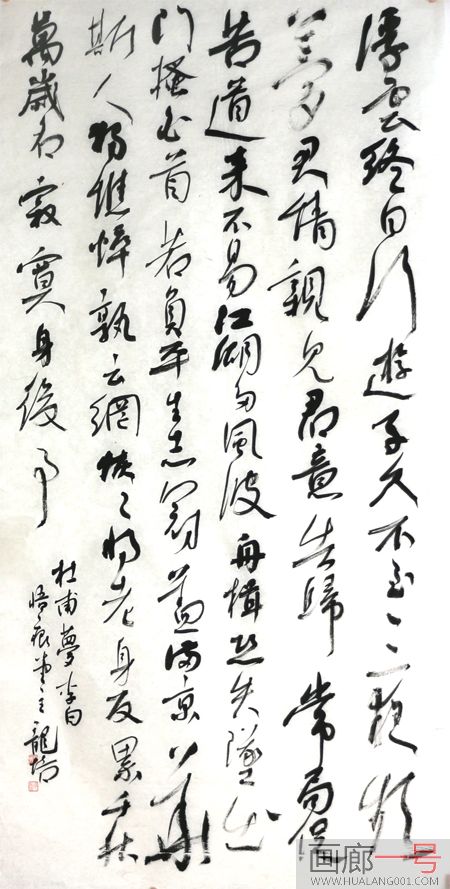 浮雲終日行遊子久不至三夜頻
夢君情親見君意告歸常局促
苦道来不易江湖多風波舟楫恐失墜出
門搔白首若負平生志冠蓋滿京華
斯人獨憔悴孰云網恢々將老身反累千秋
萬歲名寂寞身後事
杜甫夢李白
堂主龍
画廊一号
WWW.HUALANG001.COM